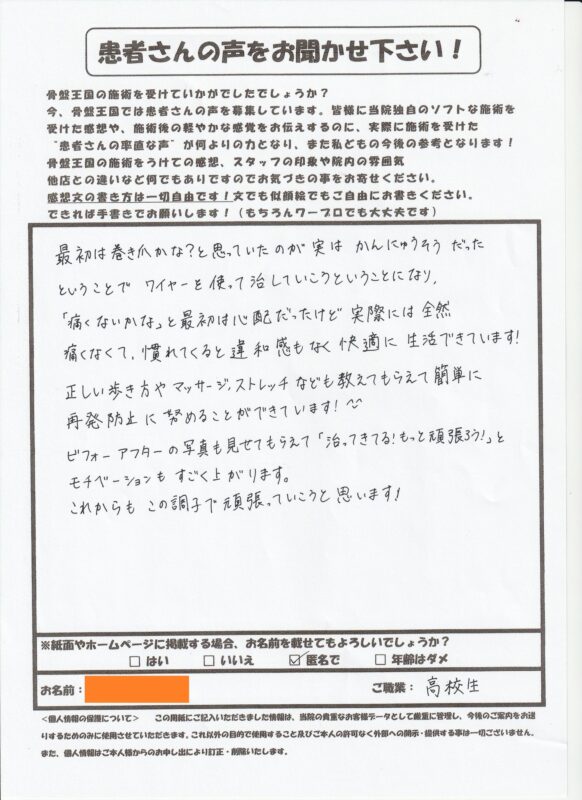 患者さんの声をお聞かせ下さい！
骨盤王国の施術を受けていかがでしたでしょうか？
今、骨盤王国では患者さんの声を募集しています。皆様に当院独自のソフトな施術を
受けた感想や、施術後の軽やかな感覚をお伝えするのに、実際に施術を受けた
“患者さんの率直な声”が何よりの力となり、また私どもの今後の参考となります！
骨盤王国の施術をうけての感想、スタッフの印象や院内の雰囲気
他店との違いなど何でもありですのでお気づきの事をお寄せください。
感想文の書き方は一切自由です！文でも似顔絵でもご自由にお書きください。
できれば手書きでお願いします！（もちろんワープロでも大丈夫です）
最初は巻き爪かな？と思っていたのが実は かんにゅうそう だった
ということで ワイヤーを使って治していこうということになり、
「痛くないかな」と最初は心配だったけど 実際には全然
痛くなくて、慣れてくると違和感もなく快適に生活できています！
正しい歩き方やマッサージ、ストレッチなども教えてもらえて簡単に
再発防止に努めることができています！
ビフォーアフターの写真も見せてもらえて「治ってきてる！もっと頑張ろう！」と
モチベーションもすごく上がります。
これからも この調子で頑張っていこうと思います！
※紙面やホームページに掲載する場合、お名前を載せてもよろしいでしょうか？
□ はい □ いいえ ☑ 匿名で □ 年齢はダメ
お名前： ご職業： 高校生
＜個人情報の保護について＞ この用紙にご記入いただきました情報は、当院の貴重なお客様データとして厳重に管理し、今後のご案内をお送
りするためのみに使用させていただきます。これ以外の目的で使用すること及びご本人の許可なく外部への開示・提供する事は一切ございません。
また、個人情報はご本人様からのお申し出により訂正・削除いたします。